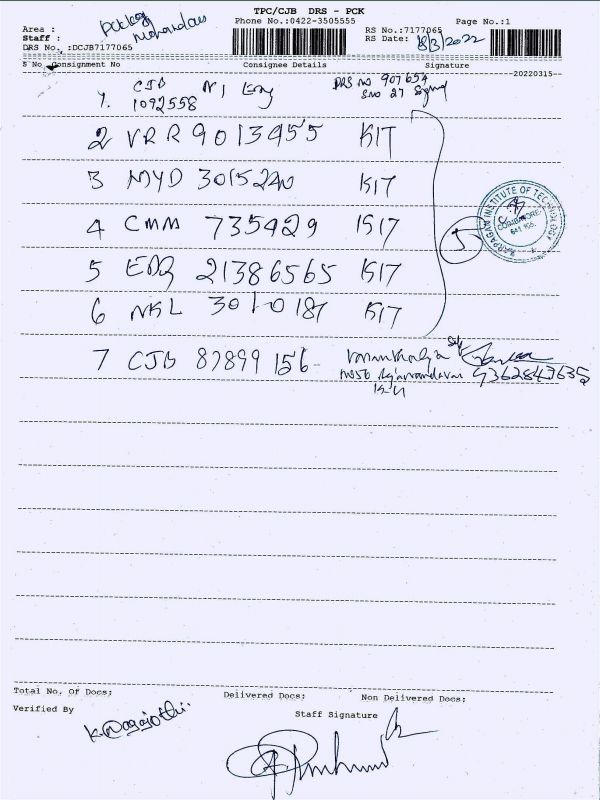 TPC/CJB DRS - PCK
Area :
Phone No.:0422-3505555
Page No.:1
Staff :
RS No.:7177065
DRS No. :DCJB7177065
RS Date: 18/3/2022
S No Consignment No Consignee Details Signature
20220315
1. CJB 1092558
DRS no 907654
S no 27
2 VRR 9013455 KIT
3 MYD 3015240 KIT
4 CMM 735929 KIT
5 EDQ 21386565 KIT
6 NKL 3010187 KIT
5
KARPAGAM INSTITUTE OF TECHNOLOGY
COIMBATORE
641 105.
7 CJB 87899156
9362843635
Total No. Of Docs: Delivered Docs: Non Delivered Docs:
Verified By
Staff Signature
K. Nagajothi.